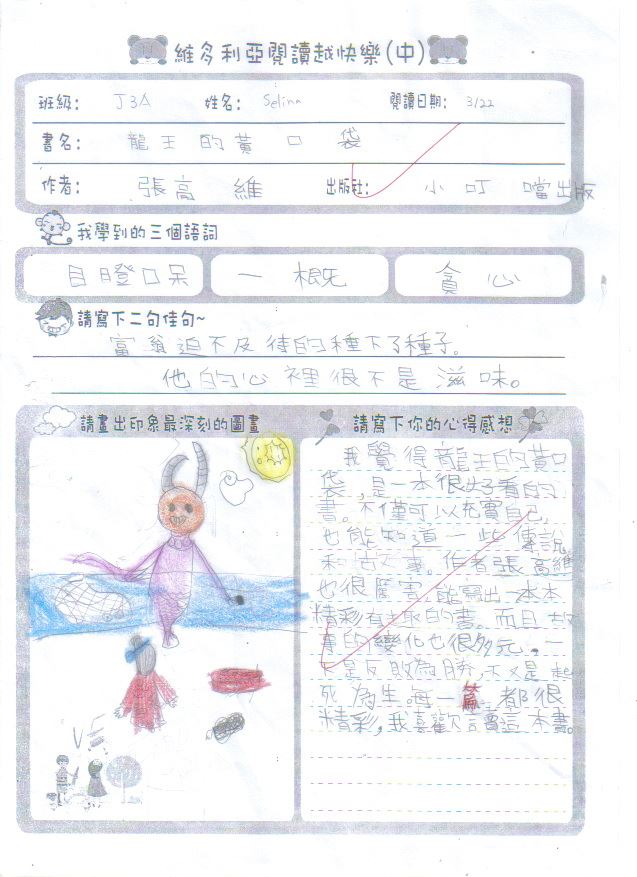 維多利亞閱讀越快樂(中)
班級: J3A 姓名: Selina 閱讀日期: 3/22
書名: 龍王的黃口袋
作者: 張高維 出版社: 小叮噹出版
我學到的三個語詞
目瞪口呆 一概 貪心
請寫下二句佳句~
富翁迫不及待的種下了種子。
他的心裡很不是滋味。
請畫出印象最深刻的圖畫
請寫下你的心得感想
我覺得龍王的黃口
袋,是一本很好看的
書。不僅可以充實自己,
也能知道一些傳說
和故事。作者張高維
也很厲害,能寫出一本本
精彩有趣的書。而且故
事的變化也很多元,一
下是反敗為勝,下又是起
死為生,每一篇都很
精彩,我喜歡這本書。